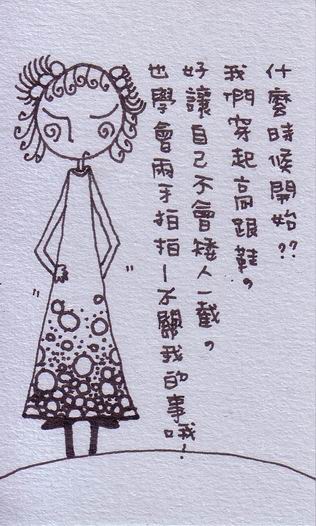 什麼時候開始??
我們穿起高跟鞋。
好讓自己不會矮人一截。
也學會兩手拍拍—不關我的事哦!